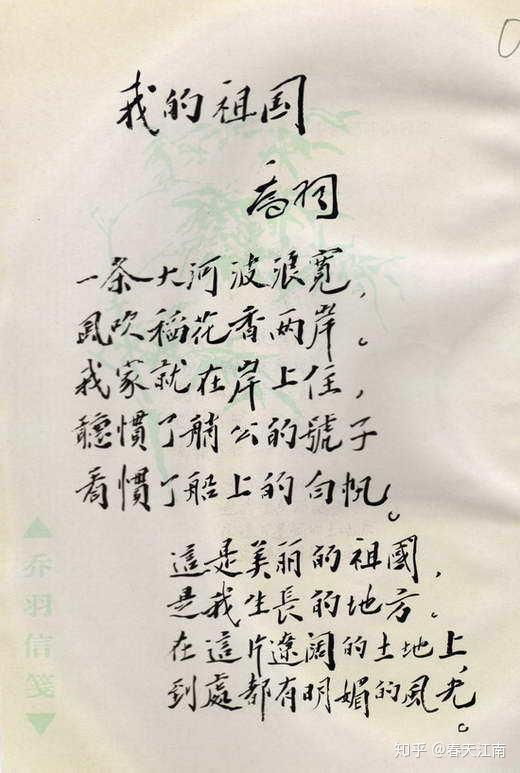 我的祖国
喬羽
一条大河波浪寬，
風吹稻花香两岸。
我家就在岸上住，
聽慣了艄公的號子
看慣了船上的白帆。
這是美丽的祖國，
是我生長的地方。
在這片遼阔的土地上，
到處都有明媚的風光。
乔羽信笺
知乎 @春天江南